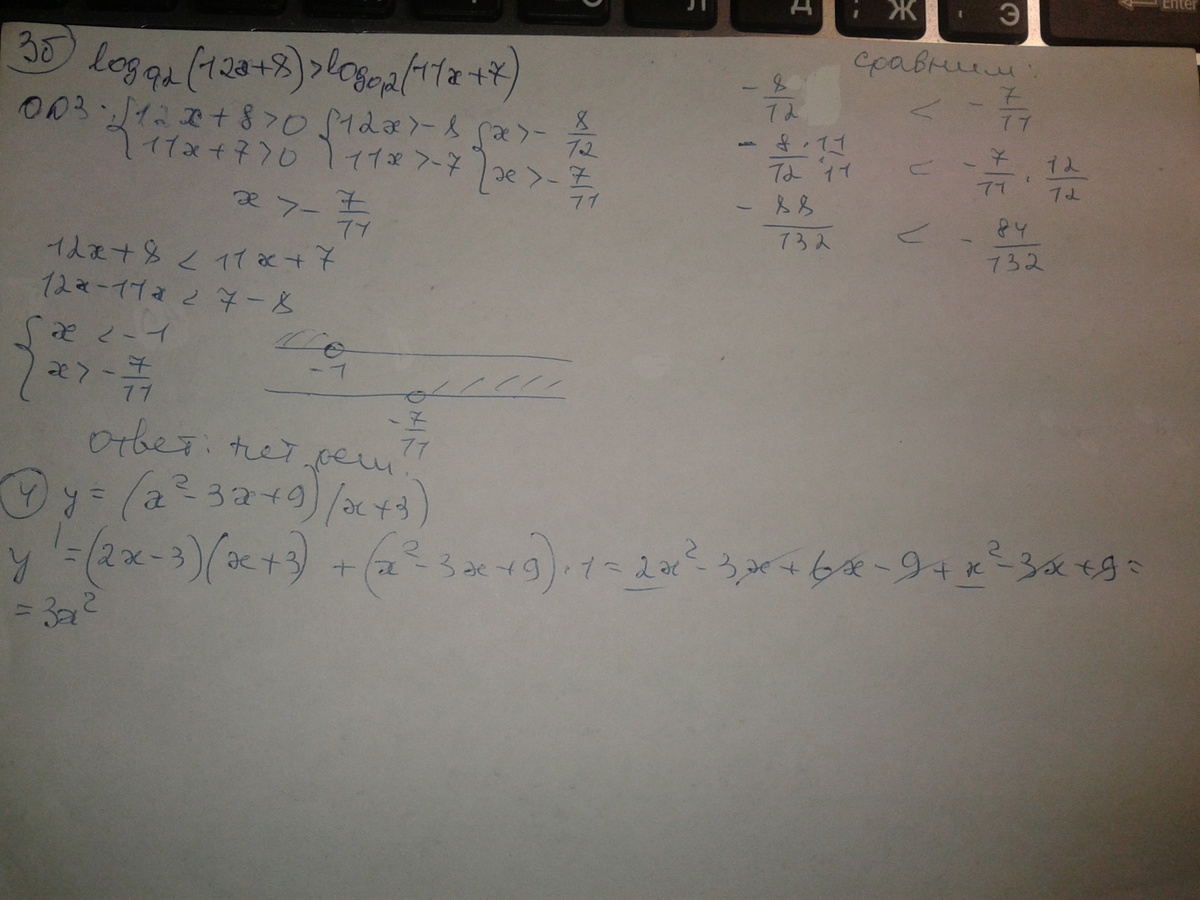 Л Д ; Ж . Э Enter
3б) log₀,₂(12x+8)>log₀,₂(11x+7)
ОДЗ: {12x+8>0 {12x>-8 {x>-8/12
{11x+7>0 {11x>-7 {x>-7/11
x>-7/11
12x+8<11x+7
12x-11x<7-8
{x<-1
{x>-7/11
-1
-7/11
Ответ: нет реш.
сравним:
-8/12 < -7/11
-8·11/12·11 < -7/11·12/12
-88/132 < -84/132
4) y=(x²-3x+9)(x+3)
y'=(2x-3)(x+3)+(x²-3x+9)·1=2x²-3x+6x-9+x²-3x+9=
=3x²